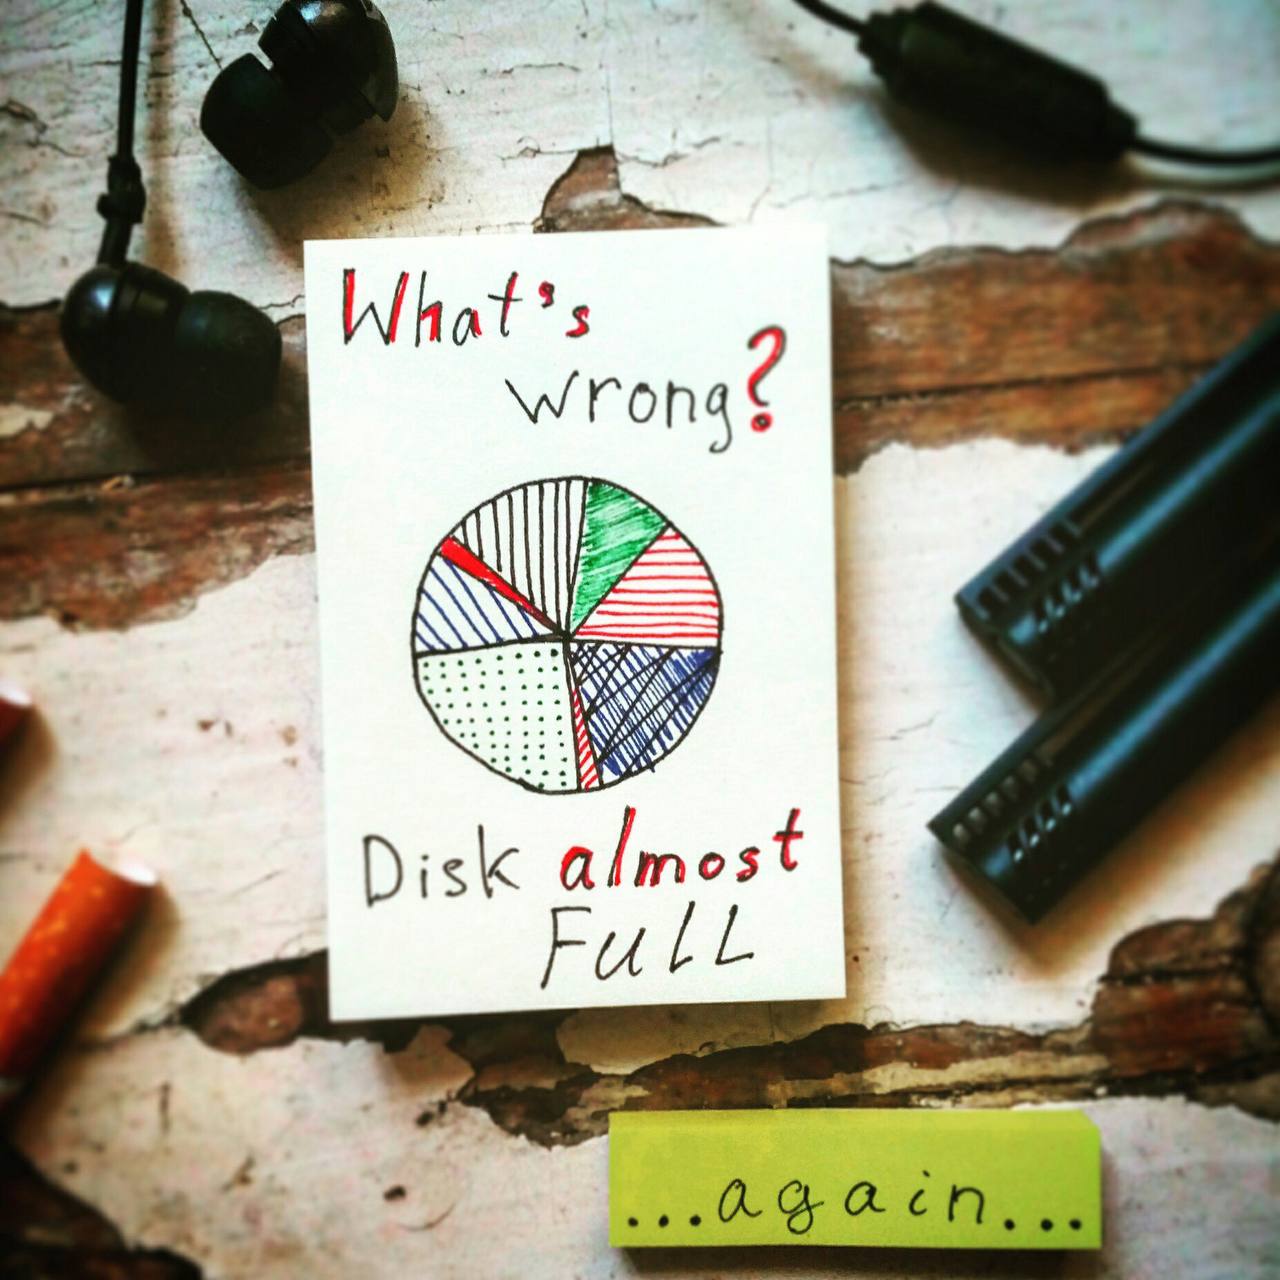 What's
wrong?
Disk almost
FULL
...again...